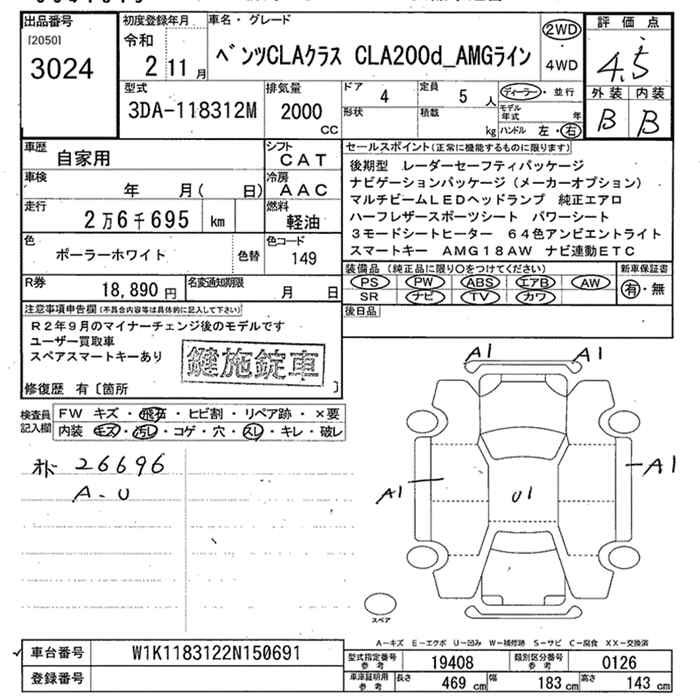 出品番号
[2050]
3024
初度登録年月
令和
2 11 月
車名・グレード
ベンツCLAクラス CLA200d_AMGライン
2WD
・
4WD
評価点
4.5
外装 内装
B B
型式
3DA-118312M
排気量
2000
CC
ドア 4
定員 5 人
形状
積載 kg
ディーラー・並行
モデル年式 年
ハンドル 左・右
車歴
自家用
シフト
CAT
車検
年 月( 日)
冷房
AAC
走行
2万6千695 km
燃料
軽油
色
ポーラーホワイト
色替
色コード
149
R券
18,890 円
名変通知期限
月 日
セールスポイント(正常に機能するものに限ります)
後期型 レーダーセーフティパッケージ
ナビゲーションパッケージ(メーカーオプション)
マルチビームLEDヘッドランプ 純正エアロ
ハーフレザースポーツシート パワーシート
3モードシートヒーター 64色アンビエントライト
スマートキー AMG18AW ナビ連動ETC
装備品(純正品に限り○をつけてください)
PS PW ABS エアB AW
SR ナビ TV カワ
新車保証書
有・無
後日品
注意事項申告欄(不具合内容等は具体的に記入して下さい)
R2年9月のマイナーチェンジ後のモデルです
ユーザー買取車
スペアスマートキーあり
鍵施錠車
修復歴 有〔箇所 〕
検査員記入欄
FW キズ・飛石・ヒビ割・リペア跡・×要
内装 キズ・汚レ・コゲ・穴・スレ・キレ・破レ
オドメーター 26696
A-U
A1 A1
A1 U1 A1
スペア
A-キズ E-エクボ U-凹み W-補修跡 S-サビ C-腐食 XX-交換済
車台番号
W1K1183122N150691
登録番号
型式指定番号 参考 19408
類別区分番号 参考 0126
車庫証明用 参考 長さ 469 cm 幅 183 cm 高さ 143 cm